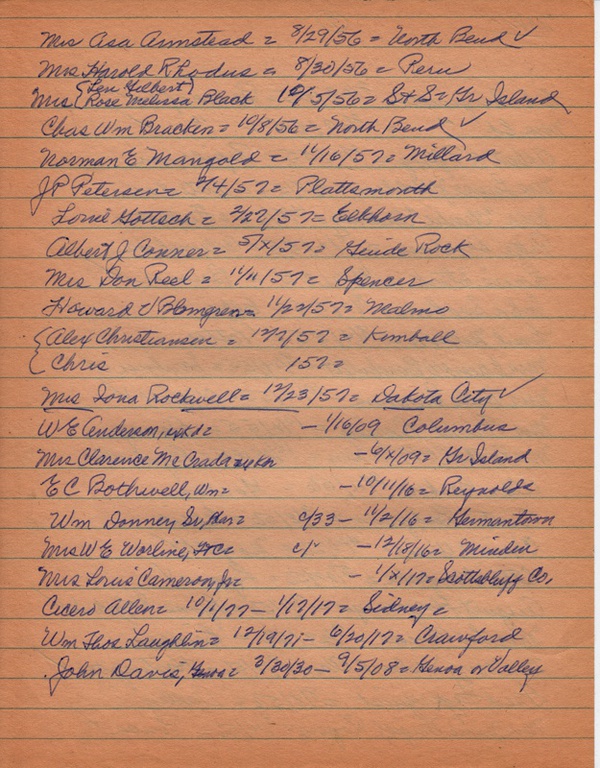 Mrs Asa Armstead = 8/29/56 = North Bend ✓
Mrs Harold Rhodus = 8/30/56 = Peru
{(Len Gilbert)
Mrs {Rose Melissa Black 10/5/56 = S+S = Gr Island
Chas Wm Bracken = 10/8/56 = North Bend ✓
Norman E Mangold = 11/16/57 = Millard
J P Petersen = 2/4/57 = Plattsmouth
Lorrie Gottsch = 2/27/57 = Elkhorn
Albert J Conner = 5/x/57 = Guide Rock
Mrs Don Reel = 11/11/57 = Spencer
Howard V Blomgren = 11/22/57 = Malmo
{Alex Christiansen = 12/7/57 = Kimball
{Chris /57 =
Mrs Iona Rockwell = 12/23/57 = Dakota City ✓
W E Anderson, = - 1/16/09 Columbus
Mrs Clarence McCrada - 6/x/09 = Gr Island
E C Bothwell, Wm = - 10/11/16 = Reynolds
Wm Donney Sr, = c/33 - 11/2/16 = Germantown
Mrs W E Worline, = c/ - 12/18/16 = Minden
Mrs Louis Cameron, Jr = - 1/x/17 = Scottsbluff Co.
Cicero Allen = 10/1/77 - 1/17/17 = Sidney =
Wm Thos Laughlin = 12/19/71 - 6/20/17 = Crawford
John Davis, = 3/30/30 - 9/5/08 = Genoa or Valley